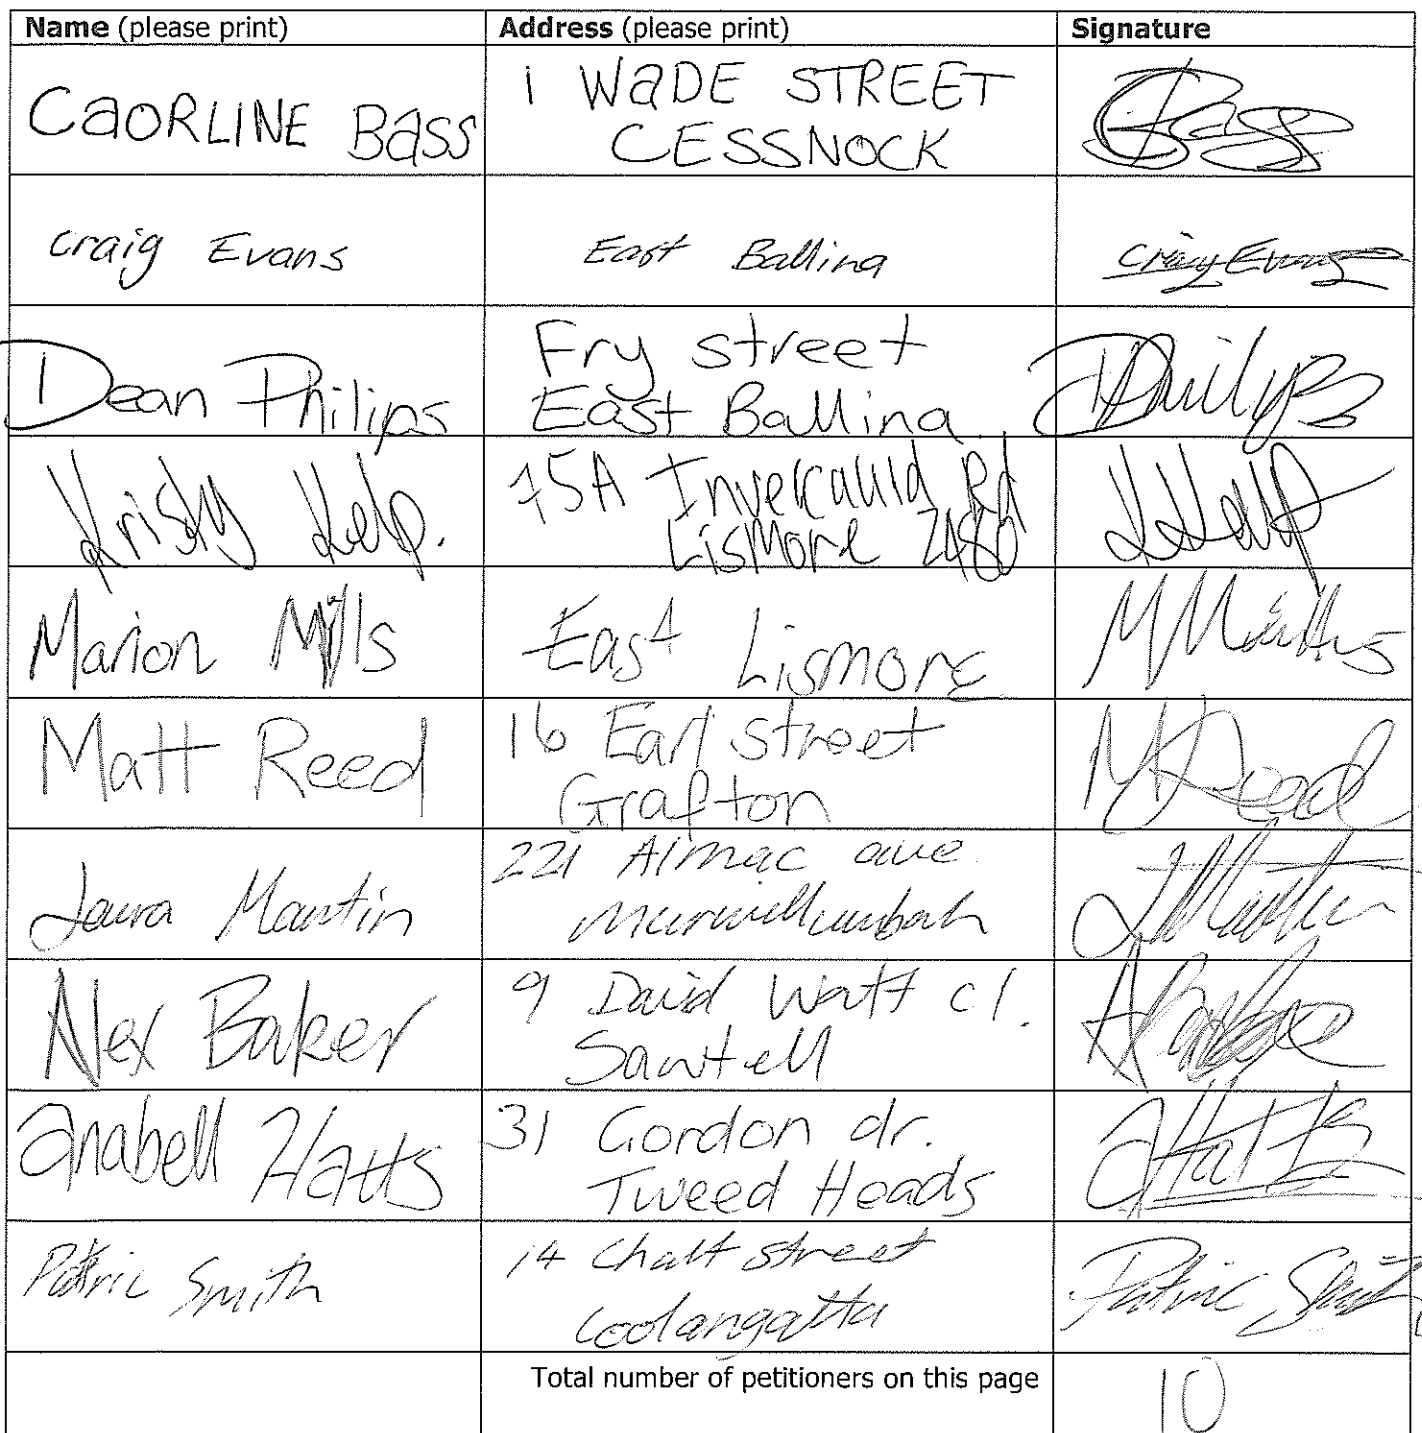 Name (please print) Address (please print) Signature
CAORLINE BASS
1 WADE STREET
CESSNOCK
Craig Evans
East Ballina
Craig Evans
Dean Philips
Fry street
East Ballina
D Philips
Kristy Kelp.
75A Invercauld Rd
Lismore 2480
K Kelp
Marion Mills
East Lismore
Matt Reed
16 Earl street
Grafton
M Reed
Laura Martin
221 Almac ave
Murwillumbah
L Martin
Alex Baker
9 David Watt cl.
Sawtell
A Baker
Anabell Hatts
31 Gordon dr.
Tweed Heads
A Hatts
Patric Smith
14 Chalt street
Coolangatta
Patric Smith
Total number of petitioners on this page 10